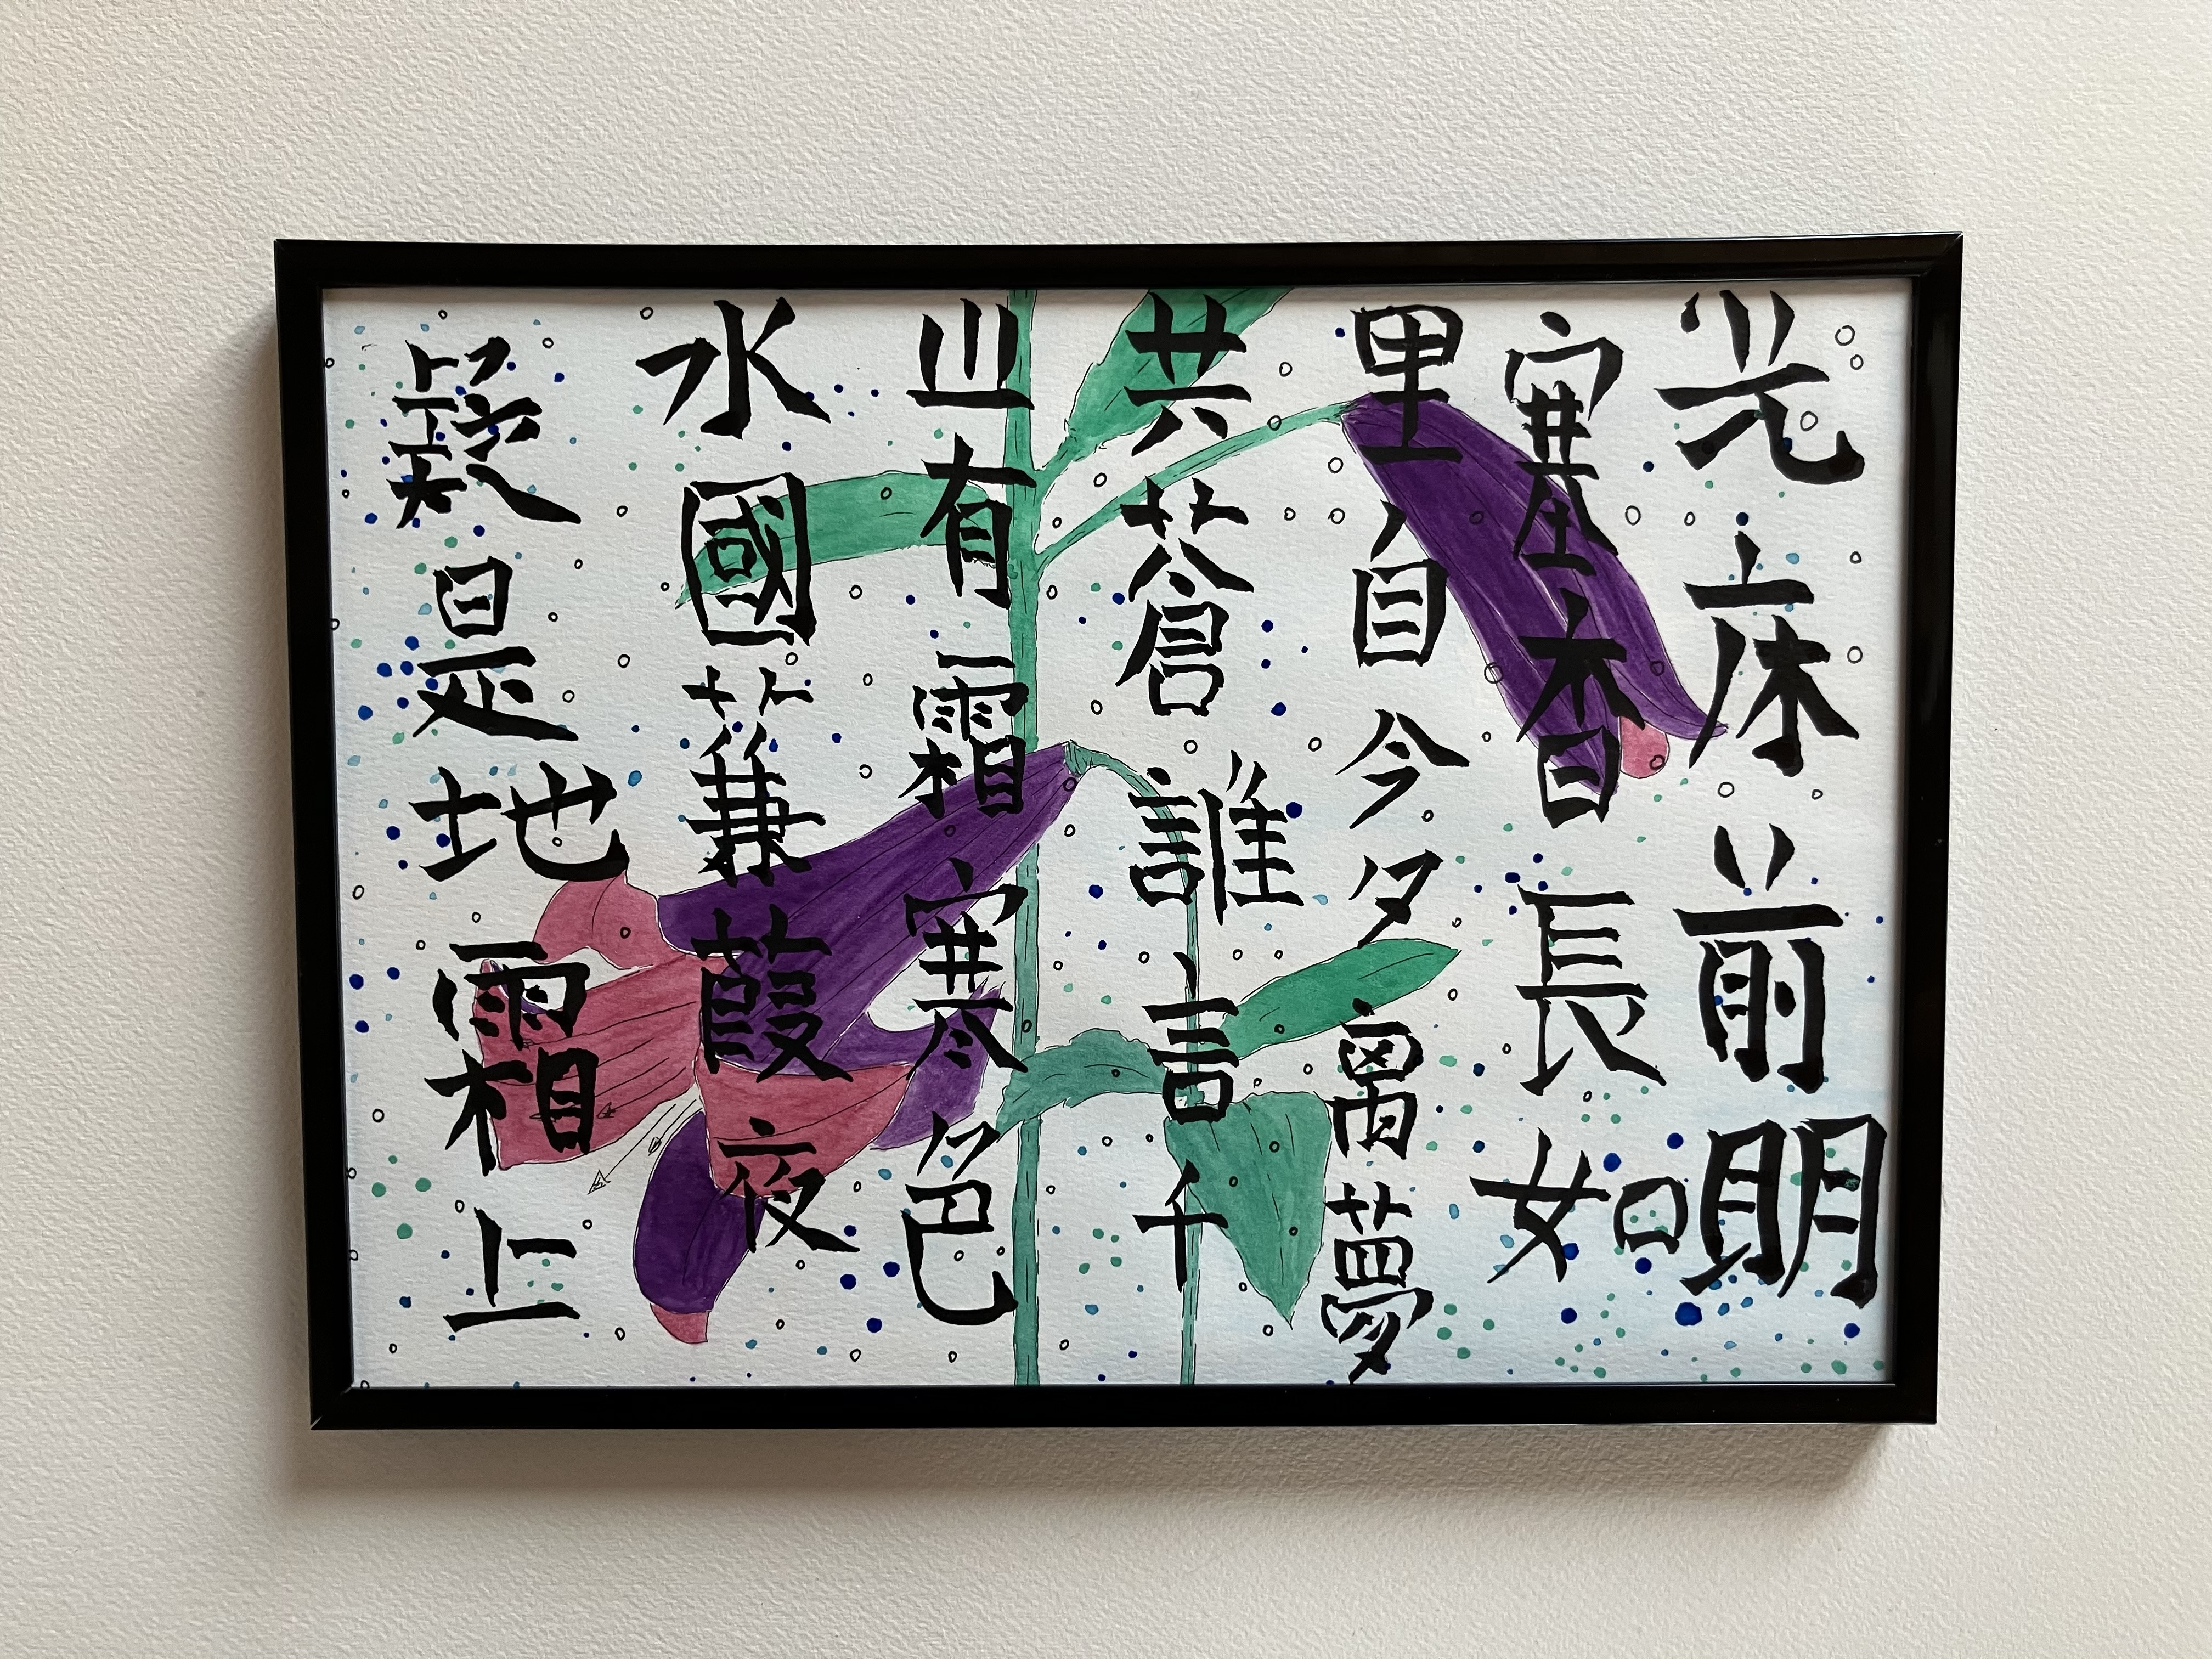 光床前明
塞杳長如
里自今夕离夢
共蒼誰言千
山有霜寒色
水國蒹葭夜
疑是地霜上